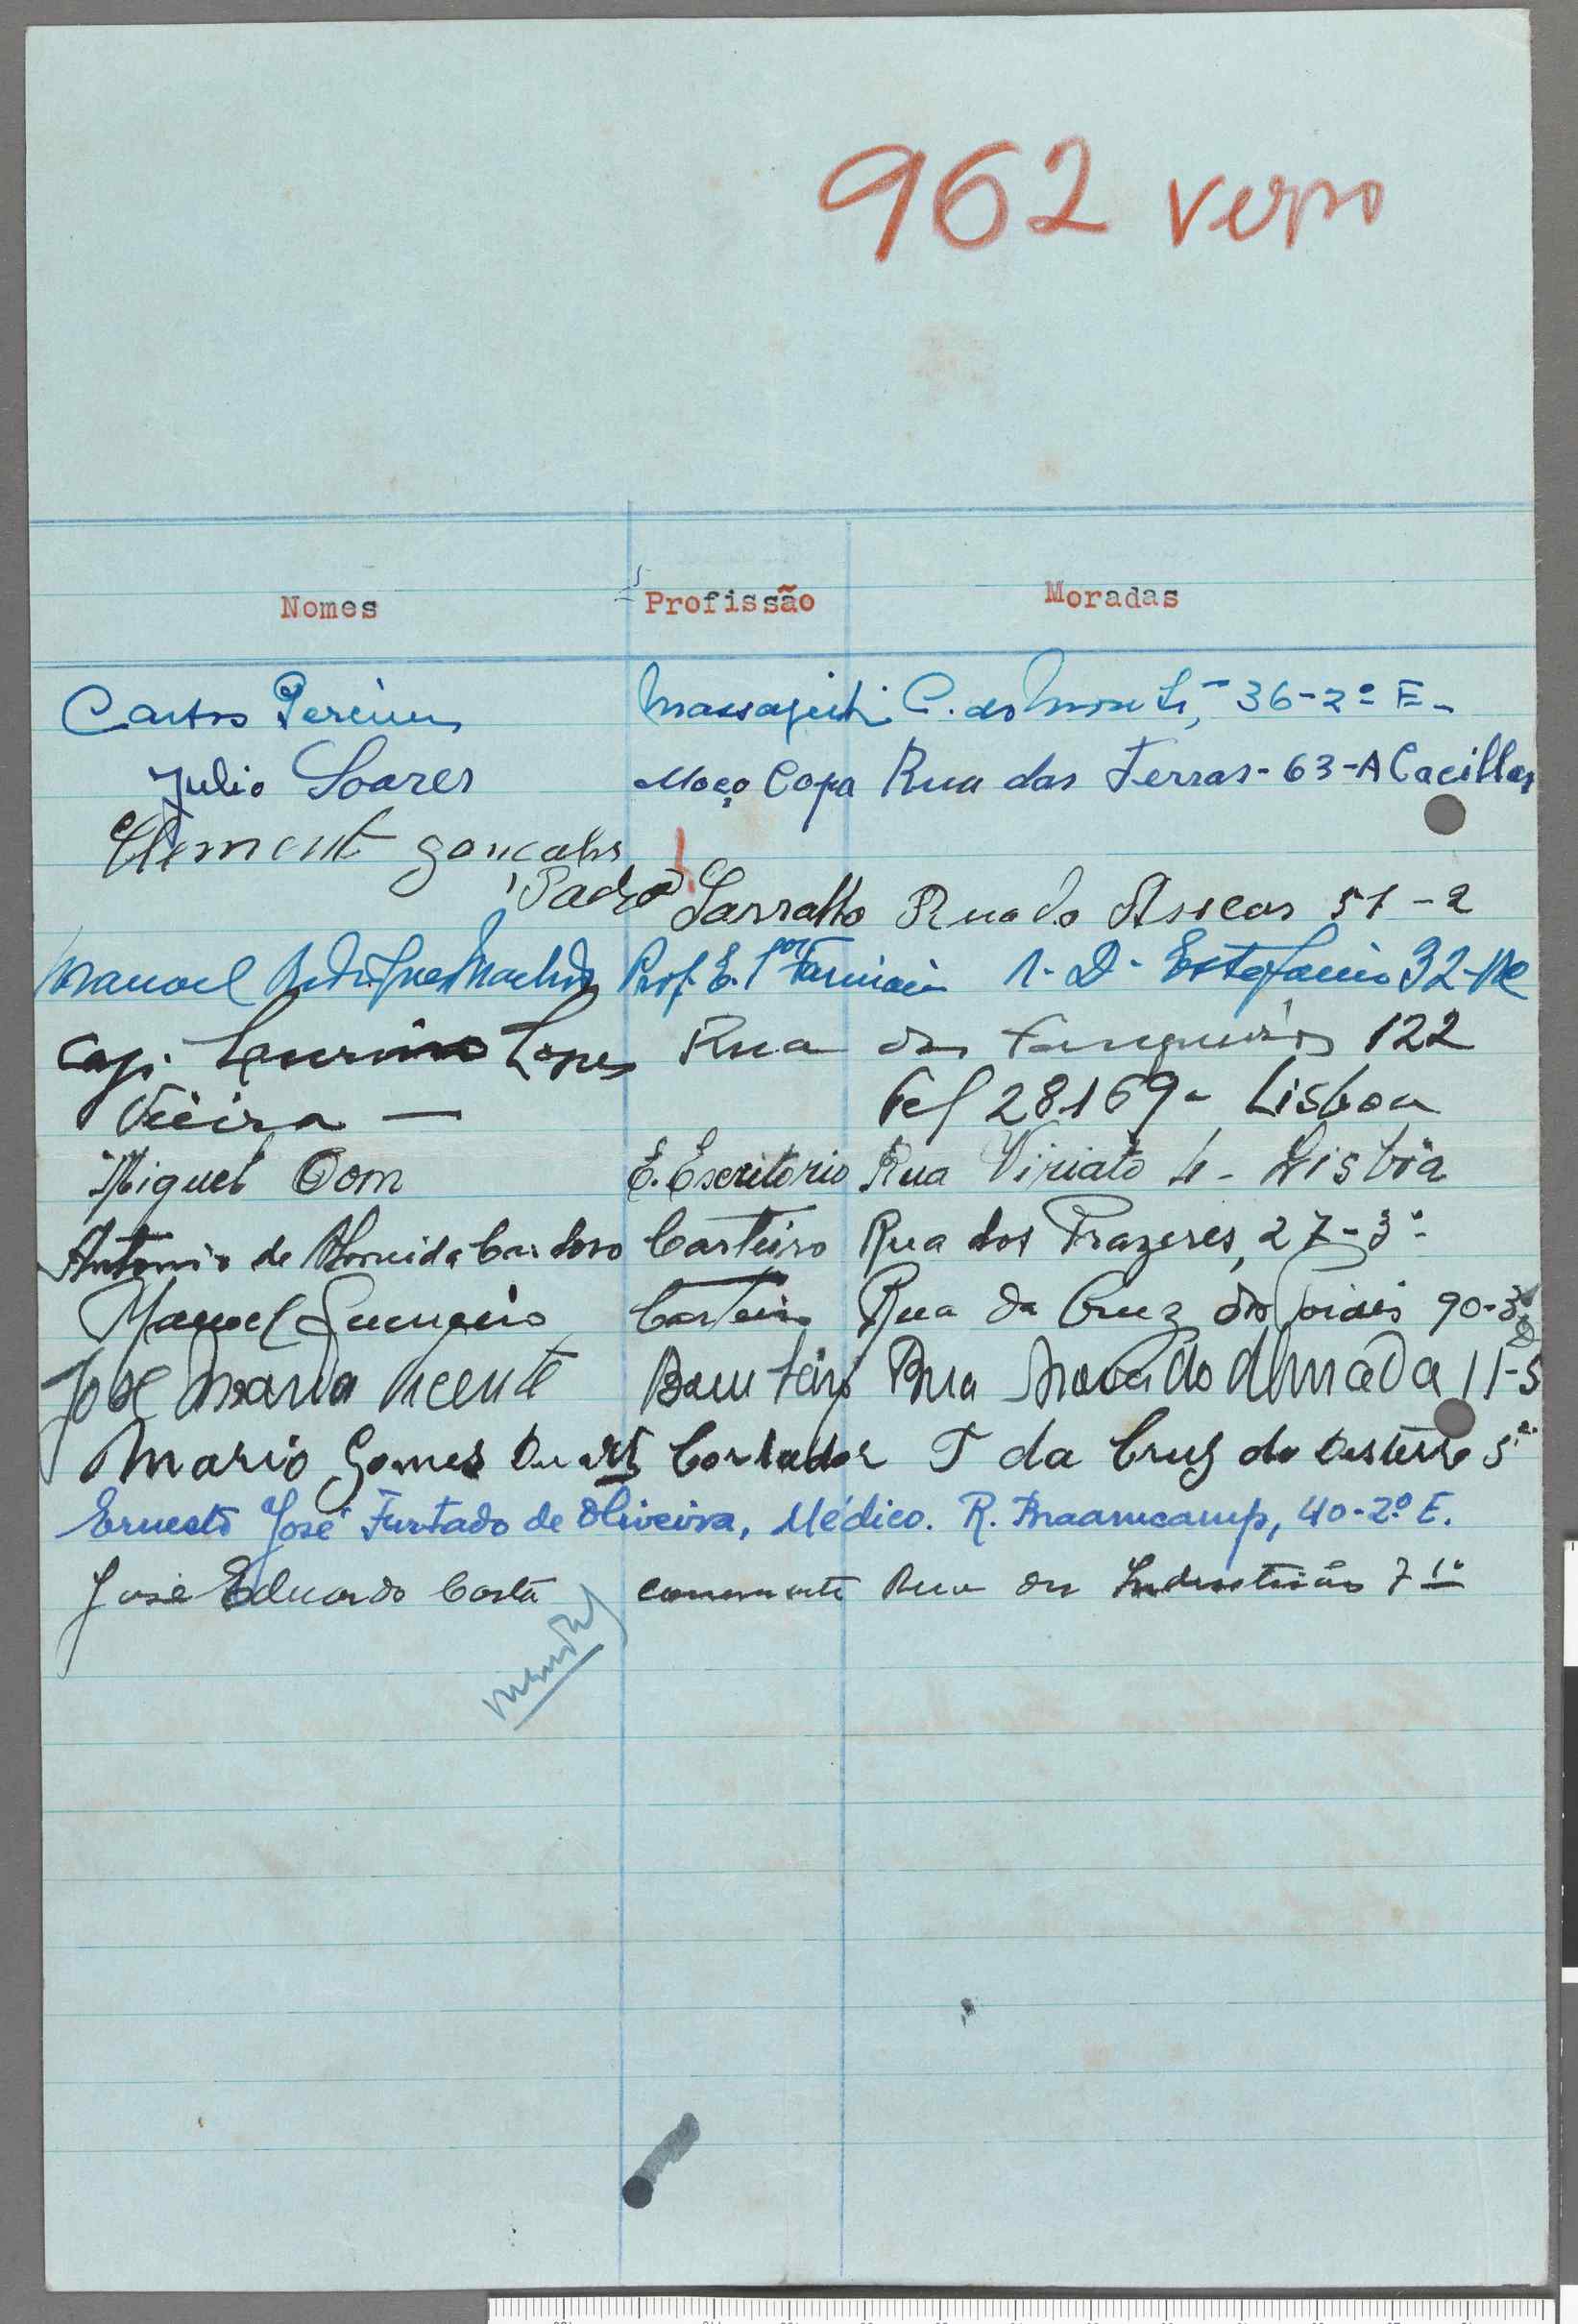 962 verso
Nomes Profissão Moradas
Carlos Pereira Massagista C. do Monte, 36-2º E-
Julio Soares Moço Copa Rua das Terras-63-A Cacilhas
Clement gonçalves
Padrão Sarralho Rua do Assucar 51-2
Manuel Rodrigues Machado Prof. E. P. 1. D. Estefania 32-
Cap. Lopes Rua dos Fanqueiros 122
Vieira — Tel 28169- Lisboa
Miguel Dom E. Escritorio Rua Viriato 4- Lisboa
Antonio de Almeida Cardoso Carteiro Rua dos Prazeres, 27-3º-
Manuel Carteiro Rua da Cruz dos Poiais 90-3º
José Maria Vicente Rua Nova do Almada 11-5
Mario Gomes Duarte Cortador T da Cruz do Desterro 5
Ernesto José Furtado de Oliveira, Médico. R. Braamcamp, 40-2º E.
José Eduardo Costa Rua das Industrias 7 1º